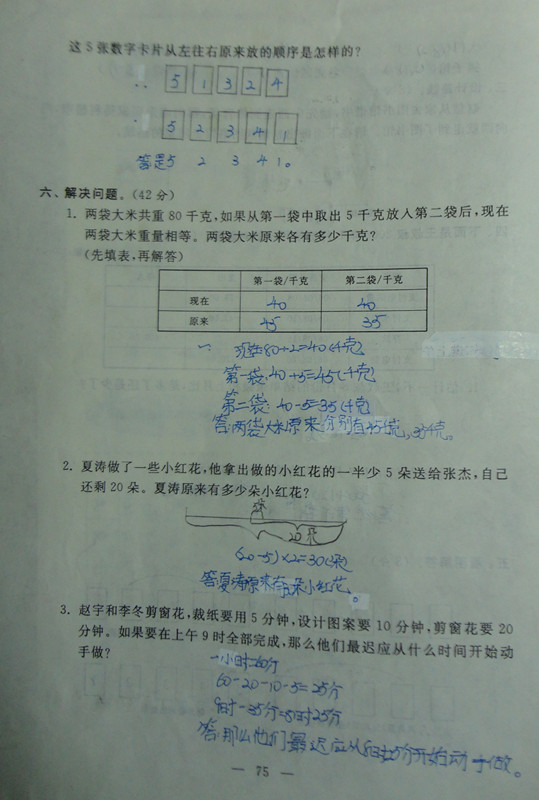 这5张数字卡片从左往右原来放的顺序是怎样的?
5 1 3 2 4
5 2 3 4 1
答:是5 2 3 4 1。
六、解决问题。(42分)
1. 两袋大米共重80千克,如果从第一袋中取出5千克放入第二袋后,现在
两袋大米重量相等。两袋大米原来各有多少千克?
(先填表,再解答)
第一袋/千克 第二袋/千克
现在 40 40
原来 45 35
现在:80÷2=40(千克)
第一袋:40+5=45(千克)
第二袋:40-5=35(千克)
答:两袋大米原来分别有45千克,35千克。
2. 夏涛做了一些小红花,他拿出做的小红花的一半少5朵送给张杰,自己
还剩20朵。夏涛原来有多少朵小红花?
20朵
(20-5)×2=30(朵)
答:夏涛原来有 朵小红花。
3. 赵宇和李冬剪窗花,裁纸要用5分钟,设计图案要10分钟,剪窗花要20
分钟。如果要在上午9时全部完成,那么他们最迟应从什么时间开始动
手做?
一小时=60分
60-20-10-5=25分
9时-35分=8时25分
答:那么他们最迟应从8时25分开始动手做。
— 75 —